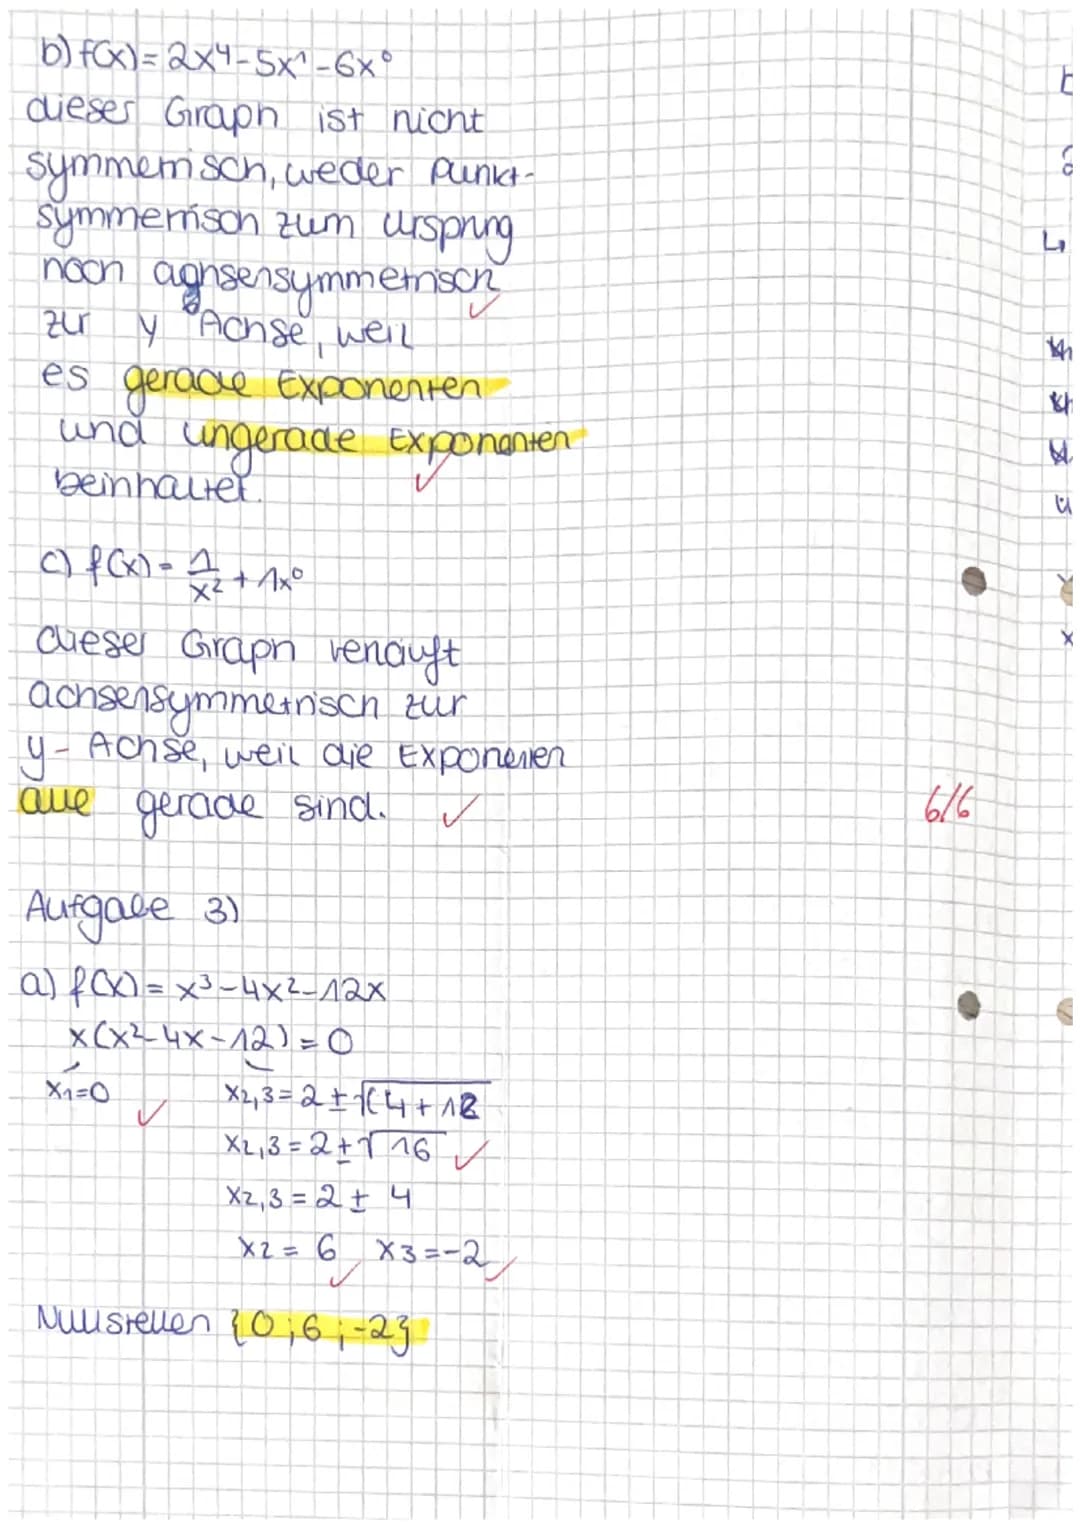 b) f(x) = 2x⁴ - 5x¹ - 6x⁰
dieser Graph ist nicht
symmetrisch, weder Punkt-
symmetrisch zum Ursprung
noch achsensymmetrisch
zur y Achse, weil
es gerade Exponenten
und ungerade Exponenten
beinhaltet.
c) f(x) = 1/x² + 1x⁰
dieser Graph verläuft
achsensymmetrisch zur
y- Achse, weil die Exponenten
alle gerade sind.
6/6
Aufgabe 3)
a) f(x) = x³ - 4x² - 12x
x(x² - 4x - 12) = 0
x₁=0 x₂,₃ = 2 ± √(4 + 12
x₂,₃ = 2 ± √16
x₂,₃ = 2 ± 4
x₂ = 6 x₃ = -2
Nullstellen {0 ; 6 ; -2}